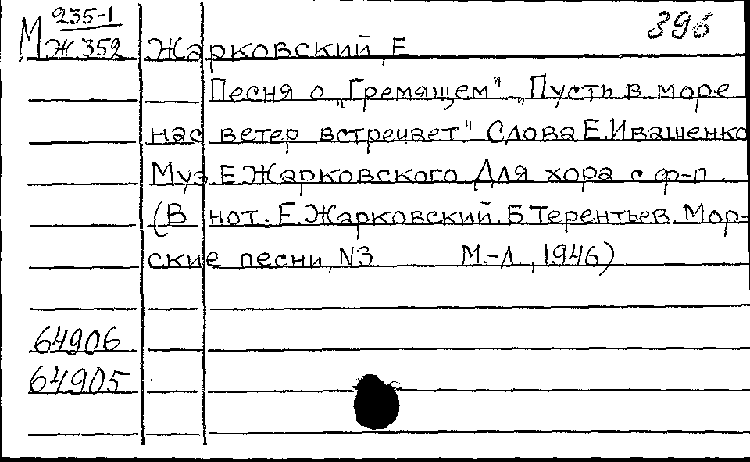 М 235-1
Ж 352
396
Жарковский, Е
Песня о „Гремящем" „Пусть в море
нас ветер встречает." Слова Е. Иващенко
Муз. Е. Жарковского Для хора с ф-п.
(В нот. Е. Жарковский. Б. Терентьев. Мор-
ские песни, N3 М.-Л., 1946)
64906
64905